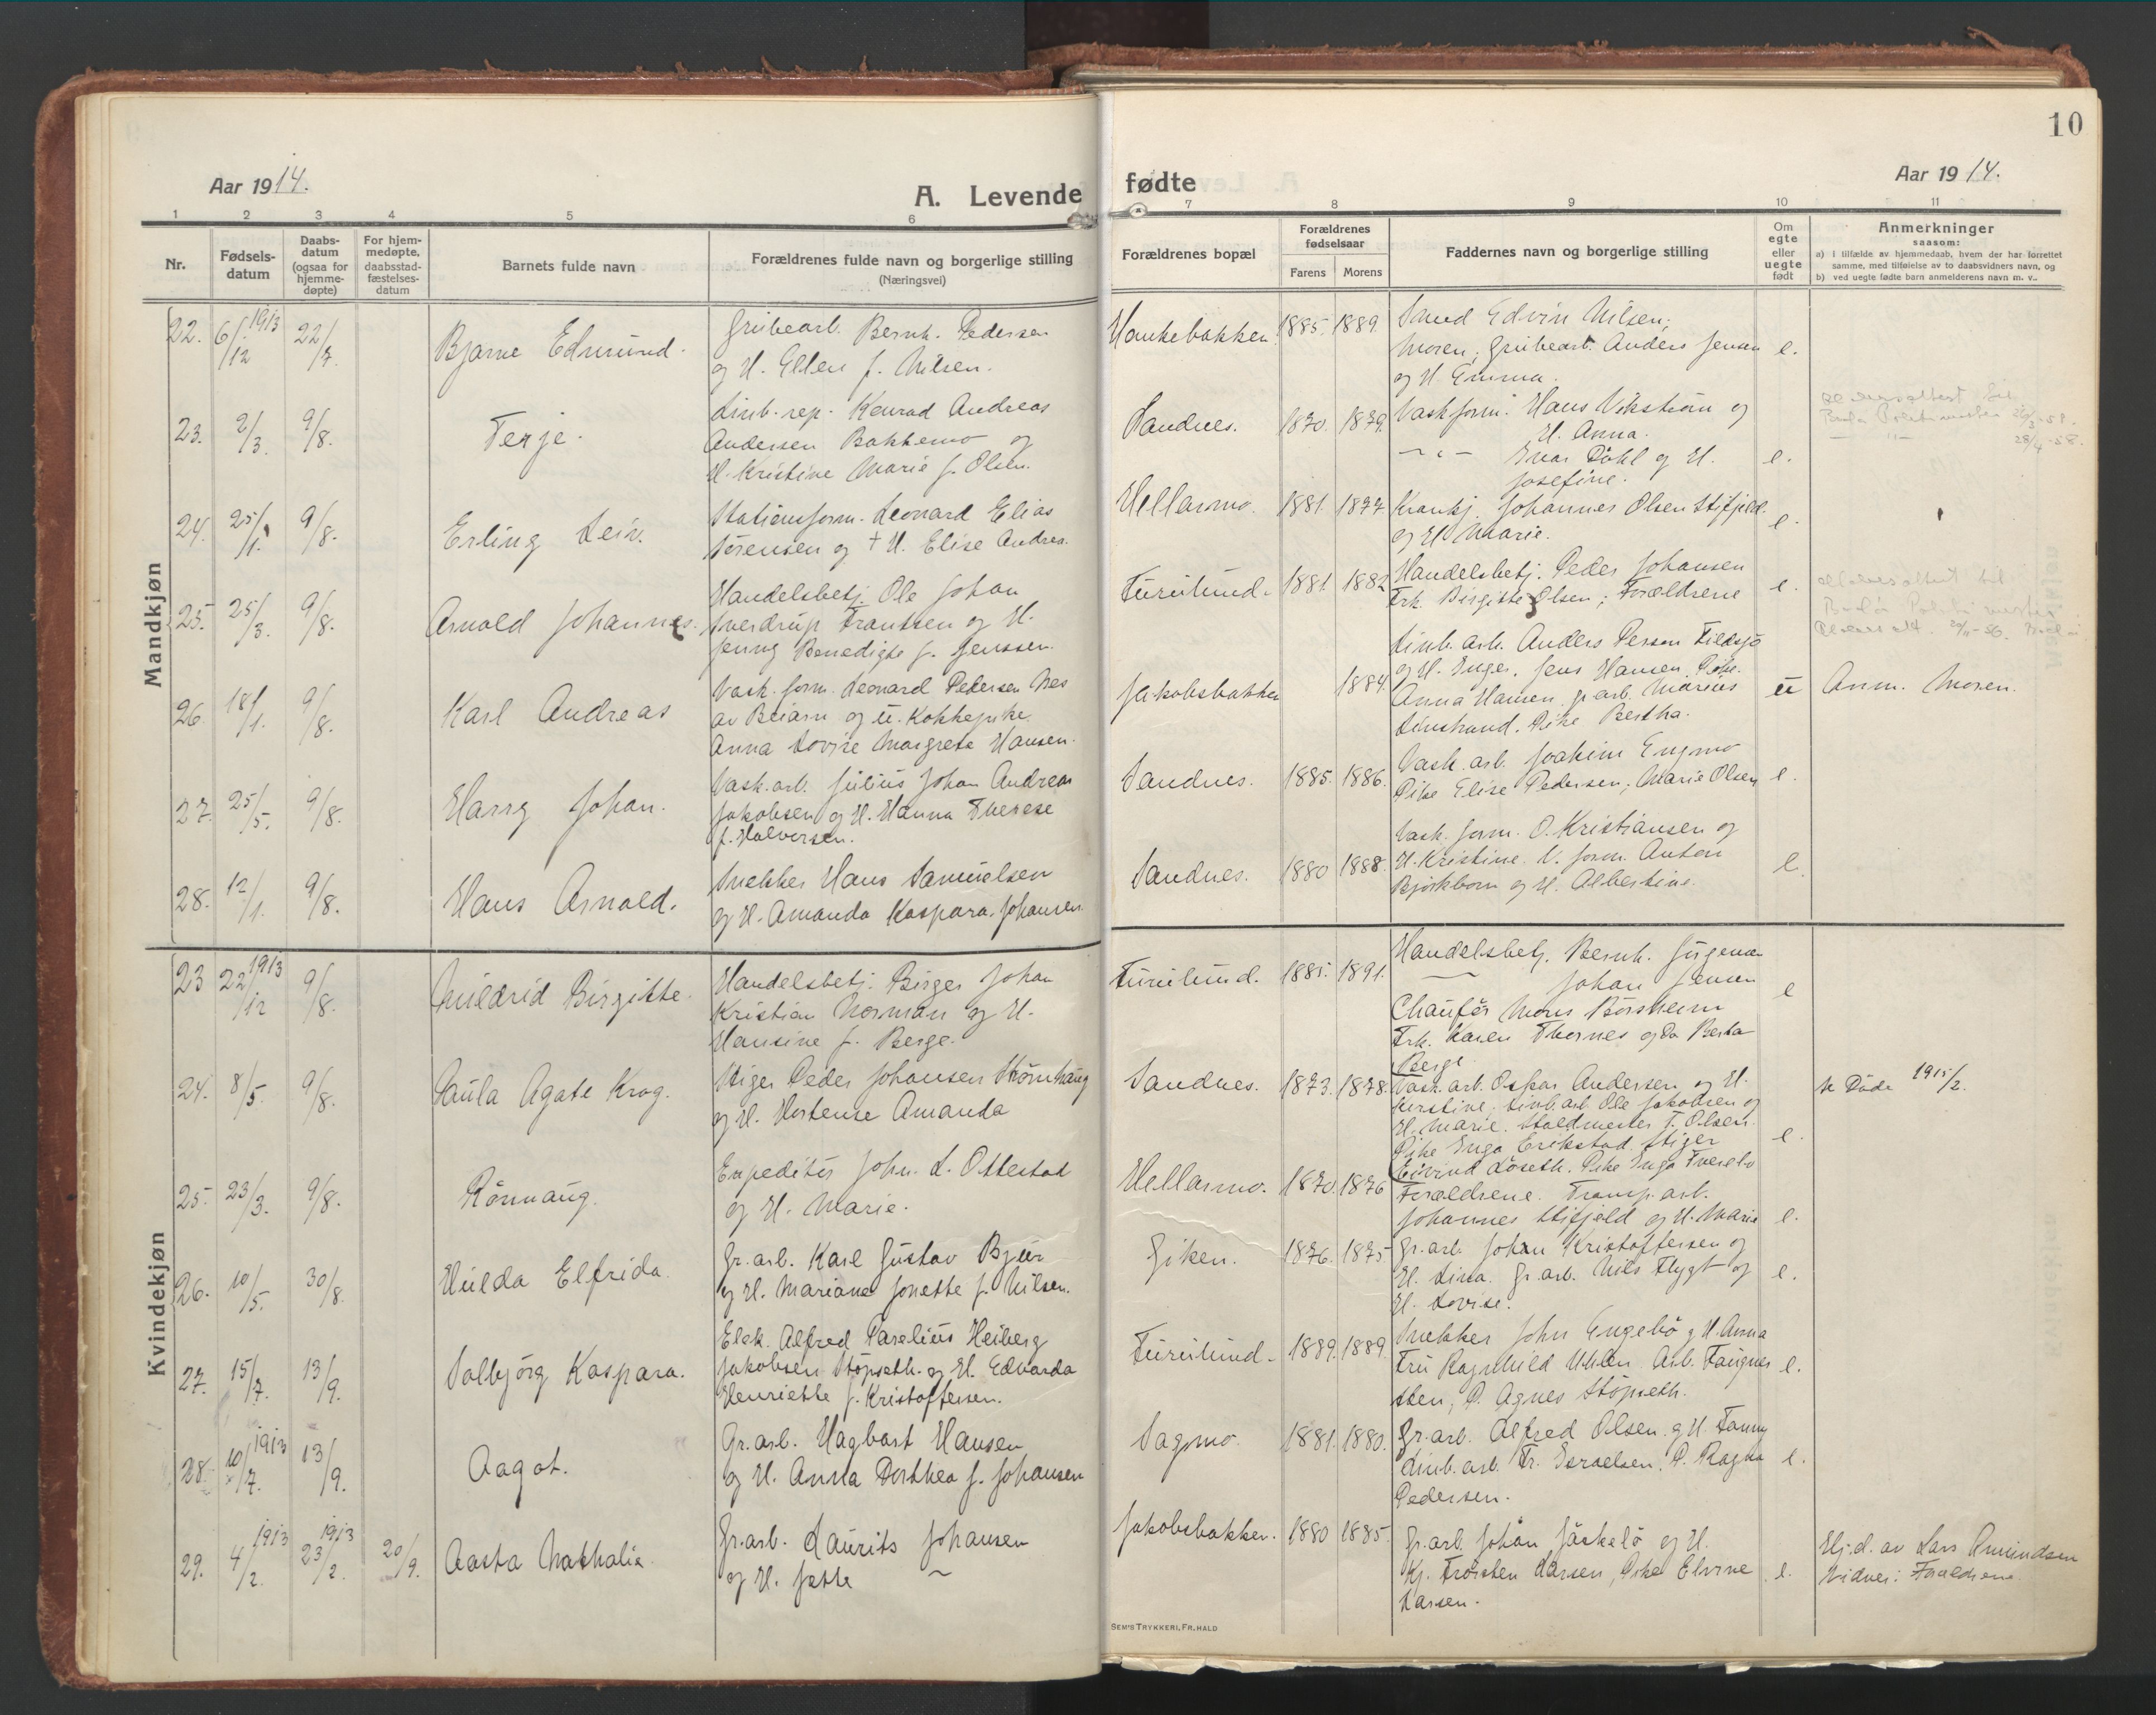 10
Aar 1914.
A. Levende
fødte
Aar 1914.
1 2 3 4 5 6
7 8 9 10 11
Nr.
Fødsels-
datum
Daabs-
datum
(ogsaa for
hjemme-
døpte)
For hjem-
medøpte,
daabsstad-
fæstelses-
datum
Barnets fulde navn
Forældrenes fulde navn og borgerlige stilling
(Næringsvei)
Forældrenes bopæl
Forældrenes
fødselsaar
Farens Morens
Faddernes navn og borgerlige stilling
Om
egte
eller
uegte
født
Anmerkninger
saasom:
a) I tilfælde av hjemmedaab, hvem der har forrettet
samme, med tilføielse av to daabsvidners navn, og
b) ved uegte fødte barn anmelderens navn m. v..
Mandkjøn
22. 6/12 1913 22/7 Bjarne Edmund.
Grubearb. Bernh. Pedersen
og H. Ellen f. Nilsen.
Hankebakken. 1885. 1889.
Sand Edvin Nilsen;
Moren; Grubearb. Anders Jensen e.
og H. Emma.
23. 2/3. 9/8. Terje.
Linb. rep. Konrad Andreas
Andersen Bakkemo og
H. Kristine Marie f. Olsen.
Sandnes. 1870. 1879.
Vaskform. Hans Vikström og
H. Anna.
— " — Ivar Dahl og H. e.
Josefine.
24. 25/1. 9/8. Erling Leiv.
Stationsform. Leonard Elias
Sørensen og † H. Elise Andrea.
Hellarmo. 1881. 1877.
Krankj. Johannes Olsen Stifjeld. e.
og H. Marie.
25. 25/3. 9/8. Arnold Johannes.
Handelsbetj. Ole Johan
Sverdrup Frantsen og H.
Jenny Benedigte f. Jenssen.
Furulund. 1881. 1882
Handelsbetj. Peder Johansen
Frk. Birgitte Olsen; Forældrene e.
26. 18/1. 9/8. Karl Andreas
Vask. form. Leonard Pedersen Nes
av Beiarn og u. Kokkepike.
Anna Lovise Margrete Hansen.
Jakobsbakken 1884.
Linb. arb. Anders Person
og H. Inger. Jens Hansen. Pike.
Anna Hansen, gr.arb. Marius
Linstrand. Pike Bertha.
u Anm. Moren.
27. 25/5. 9/8. Harry Johan.
Vask. arb. Julius Johan Andreas
Jakobsen og H. Hanna Therese
f. Halversen.
Sandnes. 1885. 1886.
Vask. arb. Joakim Engmo
Pike Elise Pedersen; Marie Olsen e.
28. 12/1. 9/8. Hans Arnold.
Snekker Hans Samuelsen
og H. Amanda Kaspara. Johansen.
Sandnes. 1880 1888.
Vask. form. O. Kristiansen og
H. Kristine. V. form. Anton e.
Bjørkbom og H. Albertine.
Kvindekjøn
23 22/12 1913 9/8. Mildrid Birgitte.
Handelsbetj. Birger Johan
Kristian Norman og H.
Hansine f. Berge.
Furulund. 1885. 1891.
Handelsbetj. Bernh. Jürgensen
— Johan Jensen e
Chaufør Mons Børsheim
Frk. Karen Thornes og Do Berta
Berge
24. 8/5. 9/8. Paula Agate Krog.
Stiger Peder Johansen Strømhaug
og H. Hortense Amanda
Sandnes. 1873. 1878.
Vask. arb. Oskar Andersen og H.
Kerstine; Linb.arb. Ole Jakobsen og
H. Marie. Staldmester T. Olsen.
Pike Inga Erikstad. Stiger e.
Eivind Løseth. Pike Inga Tverelv
se Døde 1915/2.
25. 23/3. 9/8. Rønnaug.
Expeditør John. L. Ottestad
og H. Marie.
Hellarmo. 1870. 1876
Forældrene. Transp. arb.
Johannes Stifjeld og H. Marie e.
26. 10/5. 30/8. Hulda Elfrida.
Gr. arb. Karl Gustav Bjur
og H. Mariane Jonette f. Nilsen.
Giken. 1876. 1875.
Gr. arb. Johan Kristoffersen og
H. Lina. Gr. arb. Nils Flygt og e.
H. Lovise.
27. 15/7. 13/9. Solbjørg Kaspara.
Elek. Alfred Parelius Heiberg
Jakobsen Støpseth. og H. Edvarda
Henriette f. Kristoffersen.
Furulund. 1889. 1889.
Snekker John Engebø og H. Anna
Fru Ragnhild Uhlen Arb. Taugnes e.
Sten, P. Agnes Støpseth.
28. 10/7. 1913 13/9. Aagot.
Gr. arb. Hagbart Hansen
og H. Anna Dorthea f. Johansen
Sagmo. 1881. 1880.
Gr. arb. Alfred Olsen og H. Fanny
Linb. arb. Fr. Israelsen. P. Ragna e.
Pedersen.
29. 4/2. 1913 23/2. 1913 20/9. Aasta Nathalia.
Gr. arb. Laurits Johansen
og H. Jette —
Jakobsbakken. 1880 1885.
Gr. arb. Johan Jäskelö og H.
Kj. Torsten Larsen, Pike Elvine e.
Larsen.
Hj. d. av Lars Amundsen
Vidner: Forældrene.
SEM'S TRYKKERI, FR. HALD